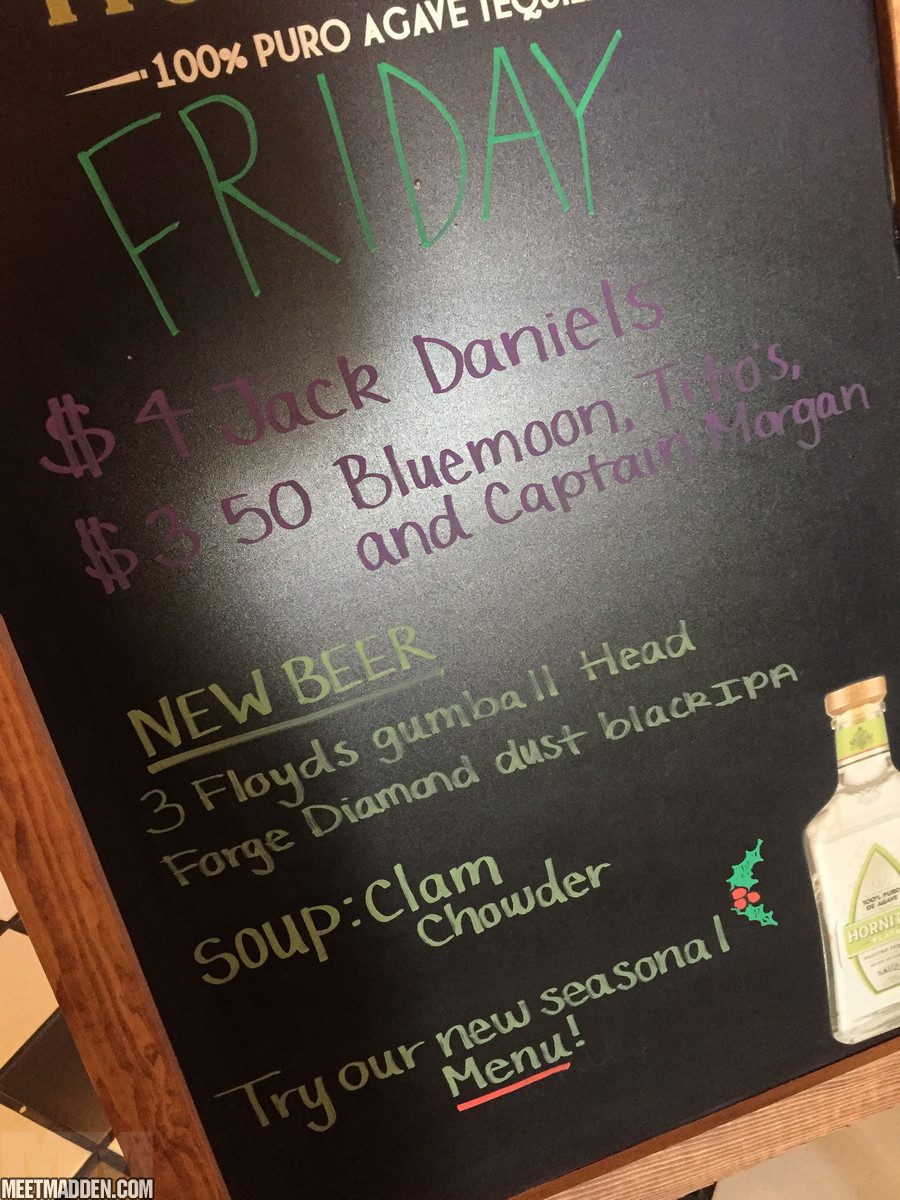 100% PURO AGAVE
FRIDAY
$4 Jack Daniels
$3 50 Bluemoon, Tito's,
and Captain Morgan
NEW BEER
3 Floyds gumball Head
Forge Diamond dust black IPA
Soup: Clam
Chowder
Try our new seasonal
Menu!
100% PURO
DE AGAVE
MEETMADDEN.COM